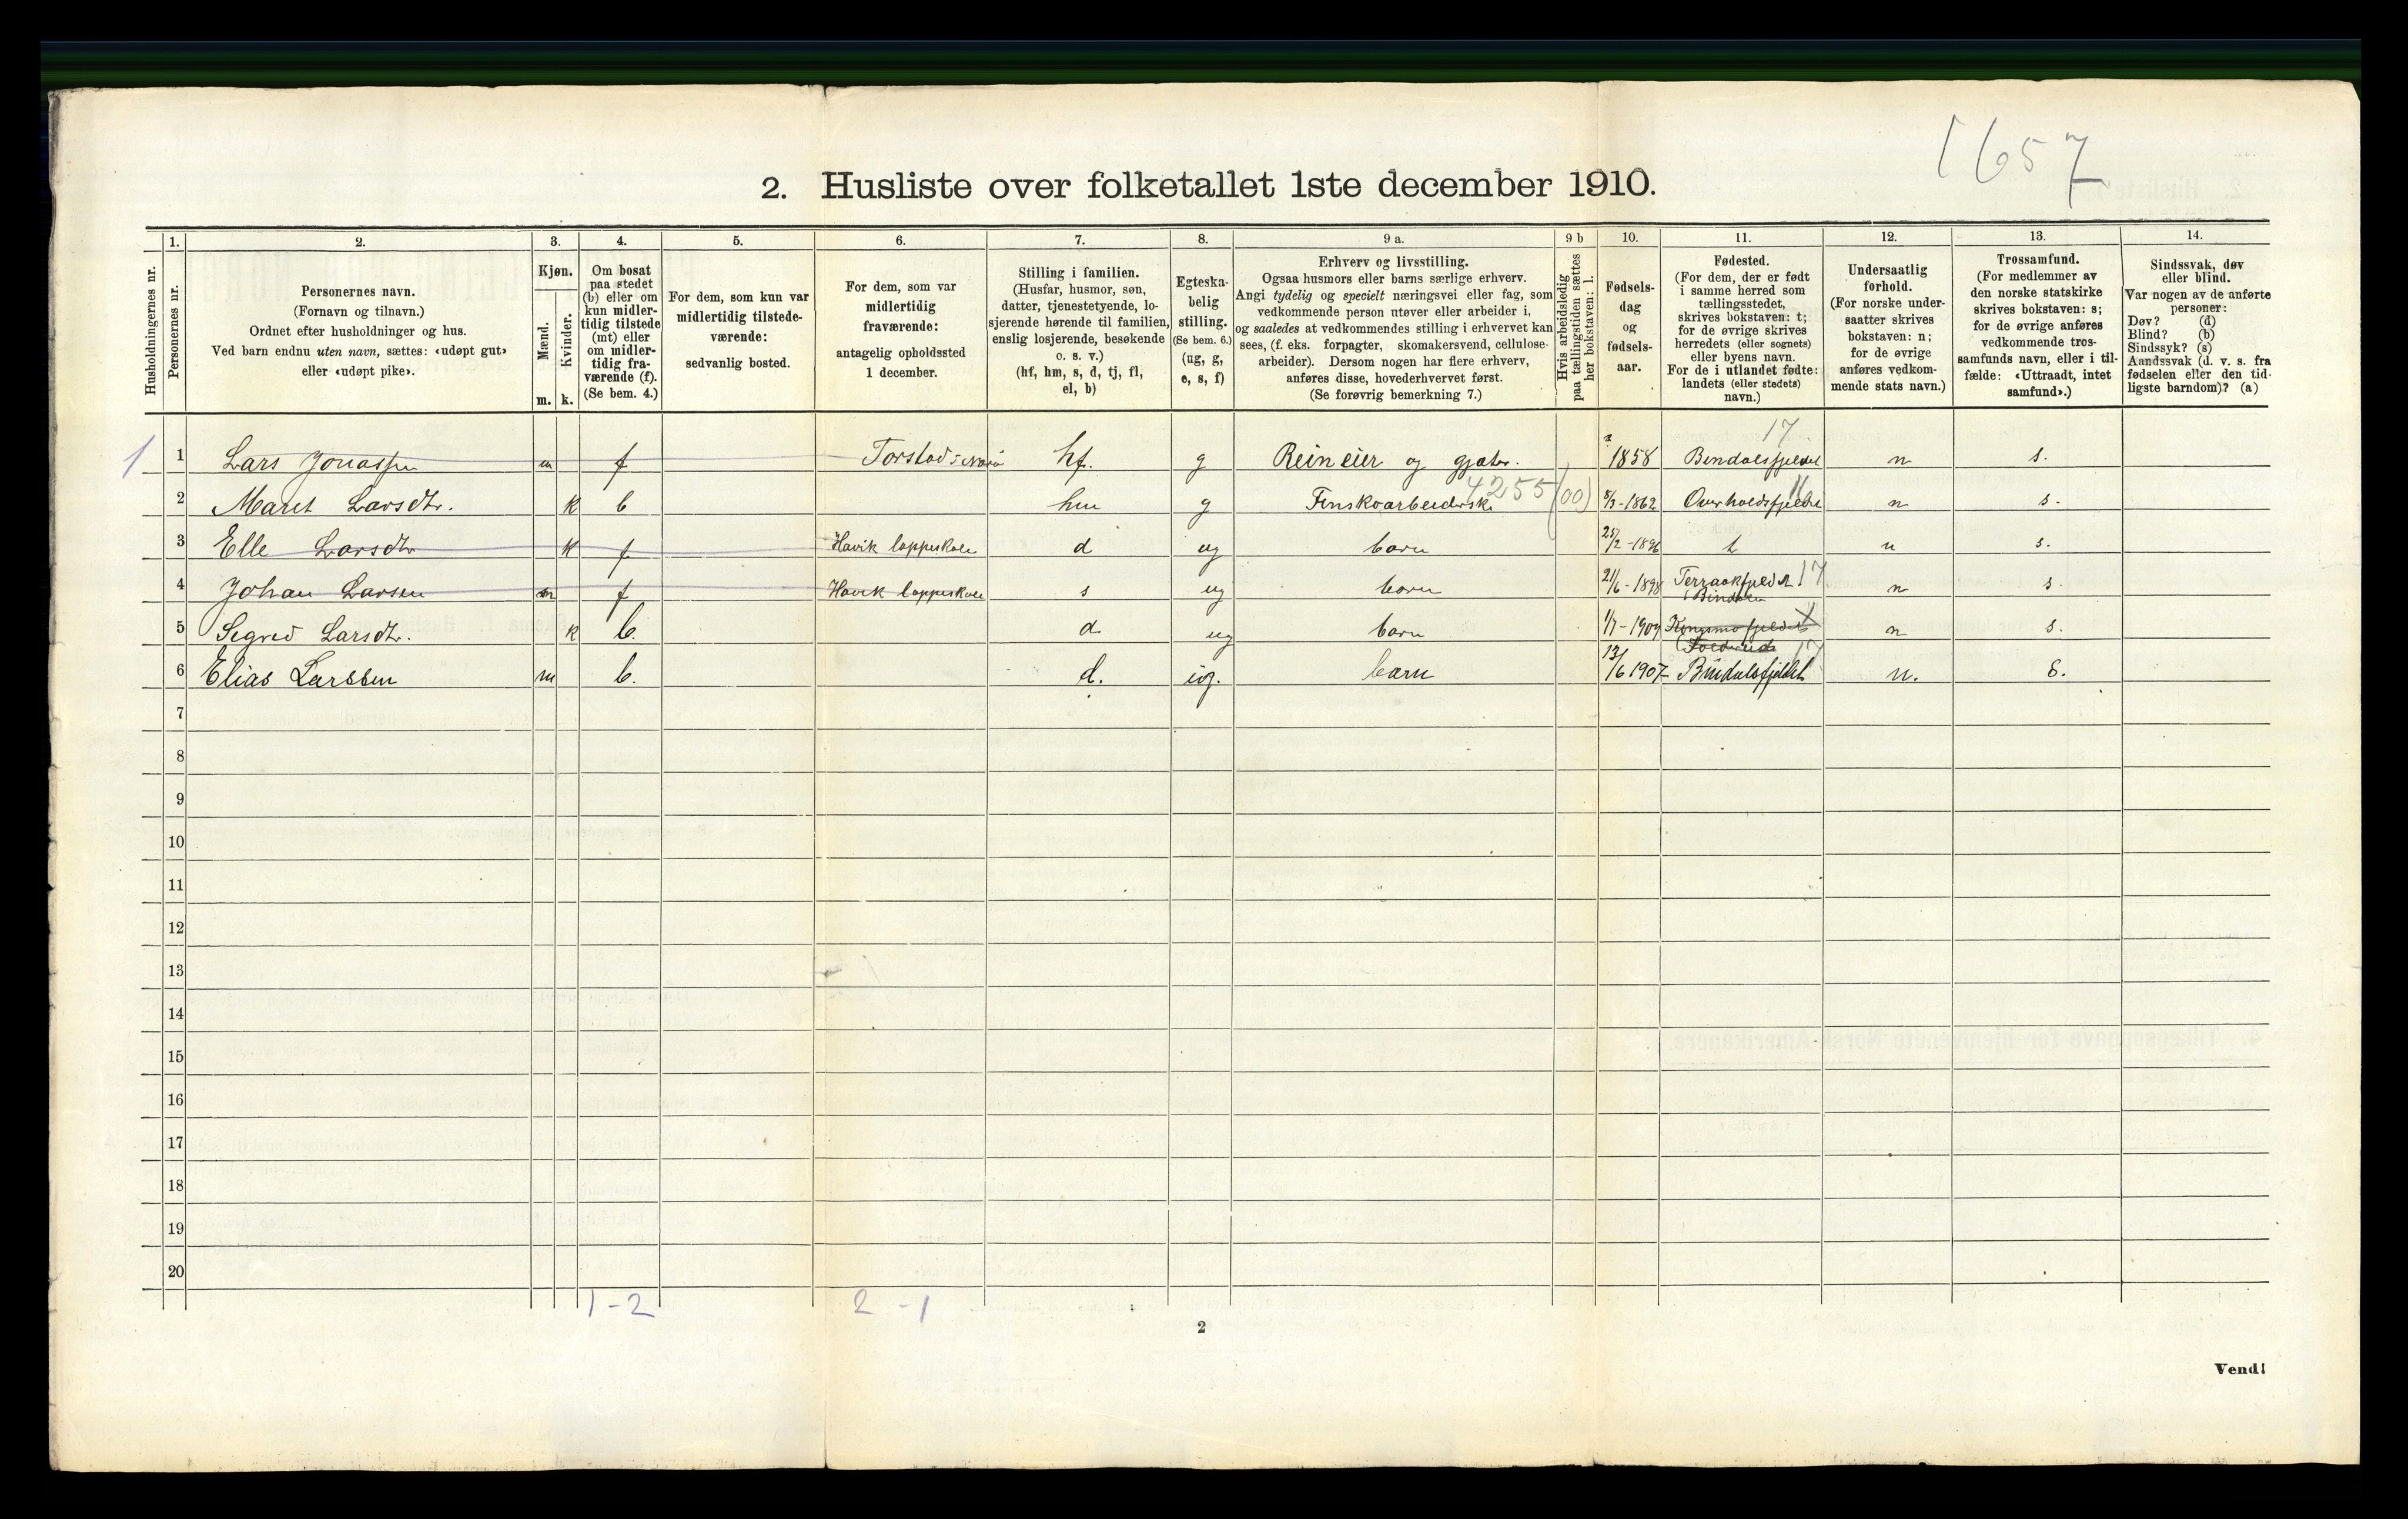 1657
2. Husliste over folketallet 1ste december 1910.
1. 2. 3. 4. 5. 6. 7. 8. 9 a. 9 b 10. 11. 12. 13. 14.
Husholdningernes nr.
Personernes nr.
Personernes navn.
(Fornavn og tilnavn.)
Ordnet efter husholdninger og hus.
Ved barn endnu uten navn, sættes: «udøpt gut»
eller «udøpt pike».
Kjøn.
Mænd.
Kvinder.
m. k.
Om bosat
paa stedet
(b) eller om
kun midler-
tidig tilstede
(mt) eller
om midler-
tidig fra-
værende (f).
(Se bem. 4.)
For dem, som kun var
midlertidig tilstede-
værende:
sedvanlig bosted.
For dem, som var
midlertidig
fraværende:
antagelig opholdssted
1 december.
Stilling i familien.
(Husfar, husmor, søn,
datter, tjenestetyende, lo-
sjerende hørende til familien,
enslig losjerende, besøkende
o. s. v.)
(hf, hm, s, d, tj, fl,
el, b)
Egteska-
belig
stilling.
(Se bem. 6.)
(ug, g,
e, s, f)
Erhverv og livsstilling.
Ogsaa husmors eller barns særlige erhverv.
Angi tydelig og specielt næringsvei eller fag, som
vedkommende person utøver eller arbeider i,
og saaledes at vedkommendes stilling i erhvervet kan
sees, (f. eks. forpagter, skomakersvend, cellulose-
arbeider). Dersom nogen har flere erhverv,
anføres disse, hovederhvervet først.
(Se forøvrig bemerkning 7.)
Hvis arbeidsledig
paa tællingstiden sættes
her bokstaven: l.
Fødsels-
dag
og
fødsels-
aar.
Fødested.
(For dem, der er født
i samme herred som
tællingsstedet,
skrives bokstaven: t;
for de øvrige skrives
herredets (eller sognets)
eller byens navn.
For de i utlandet fødte:
landets (eller stedets)
navn.)
Undersaatlig
forhold.
(For norske under-
saatter skrives
bokstaven: n;
for de øvrige
anføres vedkom-
mende stats navn.)
Trossamfund.
(For medlemmer av
den norske statskirke
skrives bokstaven: s;
for de øvrige anføres
vedkommende tros-
samfunds navn, eller i til-
fælde: «Uttraadt, intet
samfund».)
Sindssvak, døv
eller blind.
Var nogen av de anførte
personer:
Døv? (d)
Blind? (b)
Sindssyk? (s)
Aandssvak (d. v. s. fra
fødselen eller den tid-
ligste barndom)? (a)
17
1 1 Lars Jonassen m f Torstad i Nærø hf. g Rein eier og gjæter. ? 1858 Bendalsfjeldet n s.
4255 (00)
2 Maret Larsdtr. k b hm g Finskoarbeiderske 8/3-1862 Overhaldsfjeldet n s.
3 Elle Larsdtr k f Havik lappeskole d ug barn 25/2-1896 t n s.
4 Johan Larsen m f Havik lappeskole s ug barn 21/6-1898 Terraakfjeldet 17 n s
i Bindalen
5 Segred Larsdtr. k b. d ug barn 1/7-1909 Kongsmofjeldet X n s.
17
6 Elias Larssen m b. d. ug. barn 13/6 1907- Bindalsfjeldet n. s.
7
8
9
10
11
12
13
14
15
16
17
18
19
20
1-2 2-1
2
Vend!